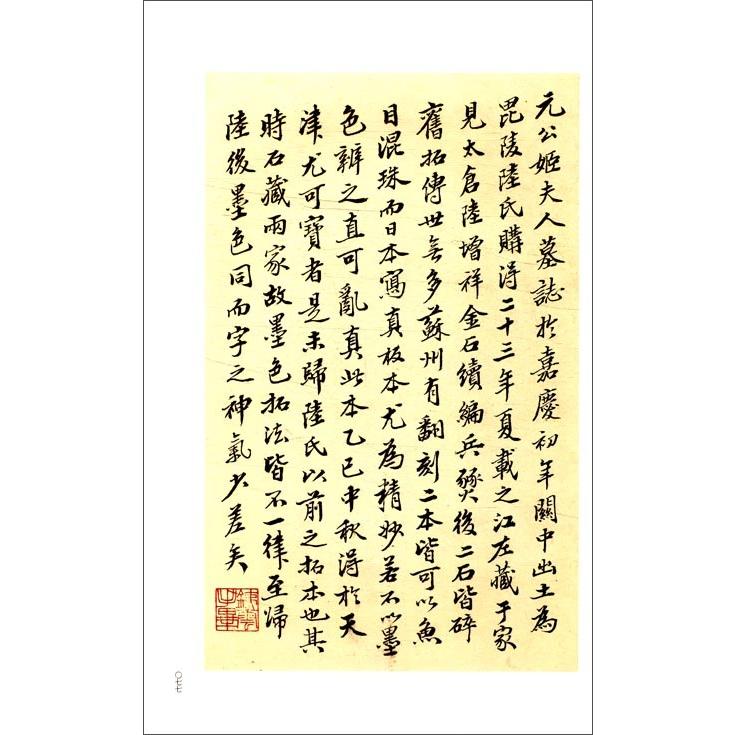 元公姬夫人墓誌於嘉慶初年關中出土為
毘陵陸氏購得二十三年夏載之江左藏于家
見太倉陸增祥金石續編兵燹後二石皆碎
舊拓傳世無多蘇州有翻刻二本皆可以魚
目混珠而日本寫真板本尤為精妙若不以墨
色辨之直可亂真此本乙巳中秋得於天
津尤可寶者是未歸陸氏以前之拓本也其
時石藏兩家故墨色拓法皆不一律至歸
陸後墨色同而字之神氣少差矣
〇七七